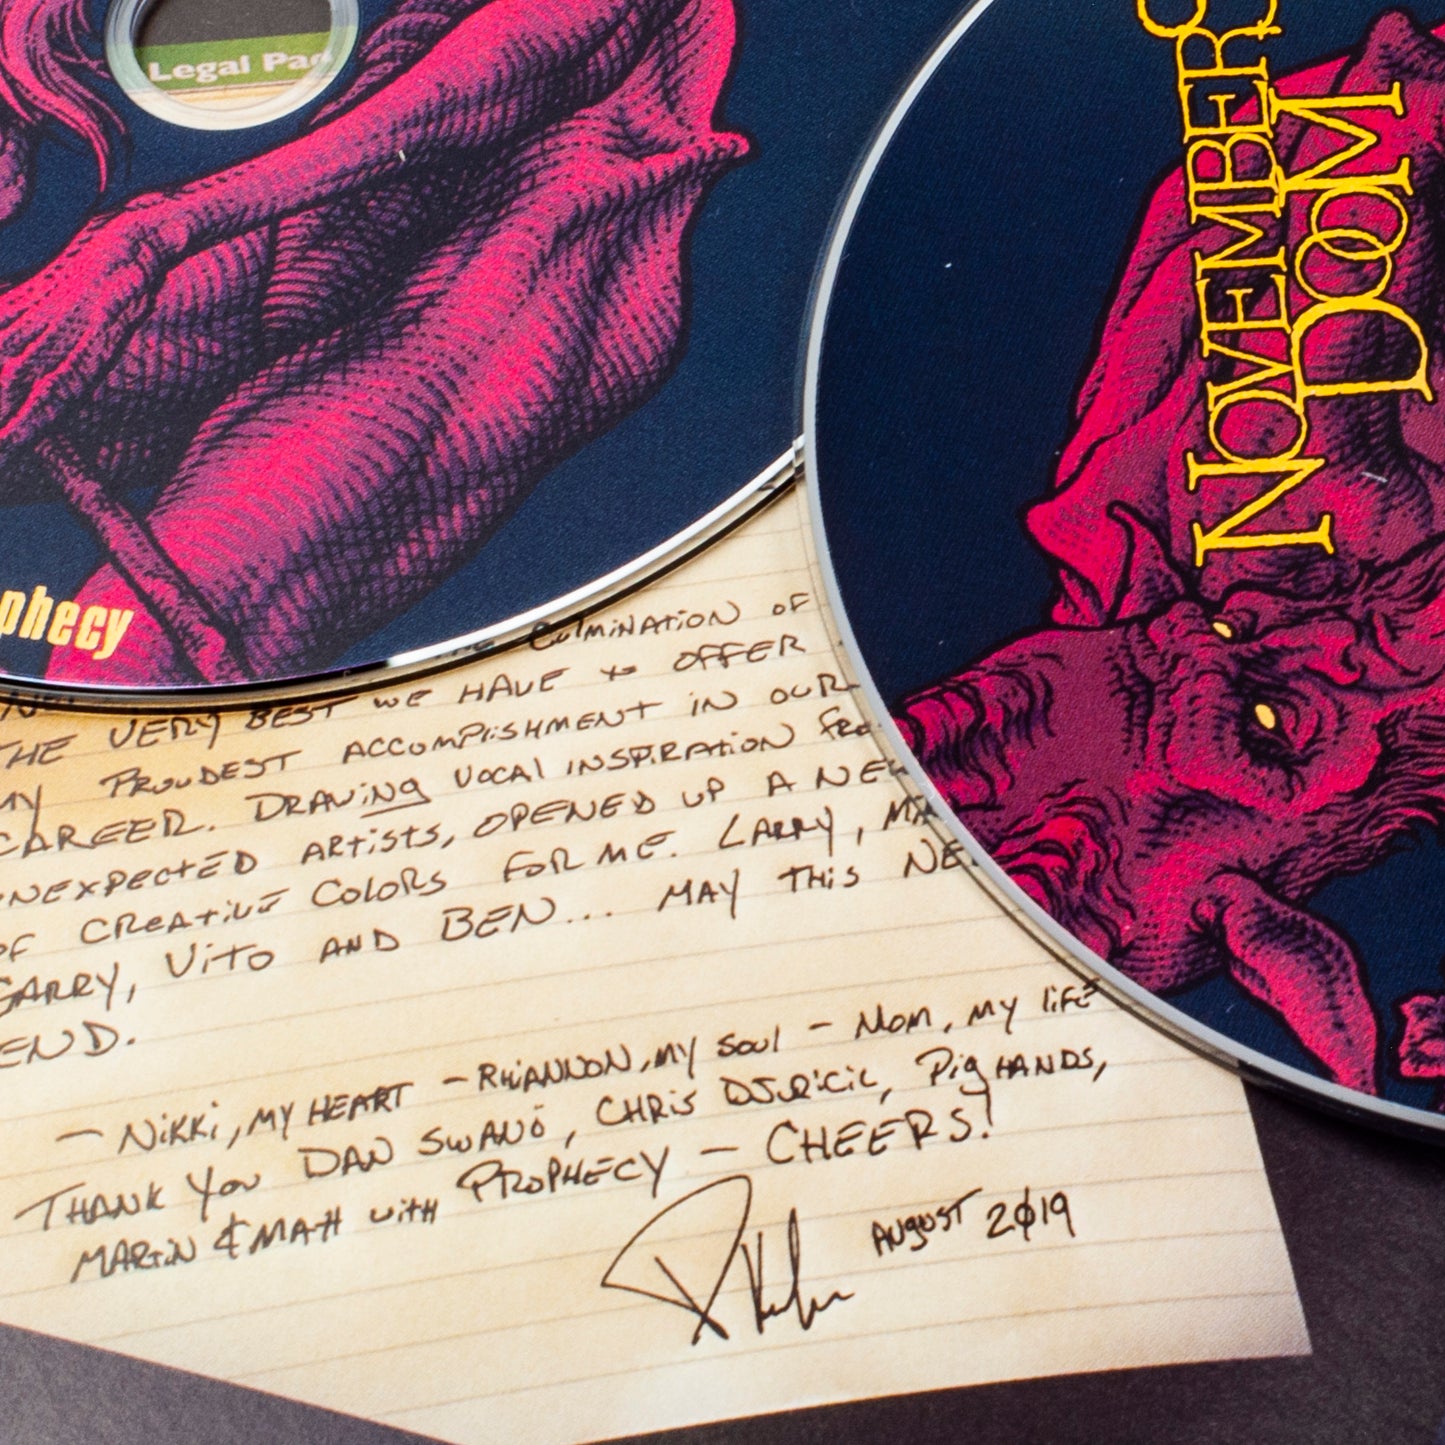 Legal Pad
NOVEMBERS
DOOM
phecy
CULMINATION OF
THE VERY BEST WE HAVE TO OFFER
MY PROUDEST ACCOMPLISHMENT IN OUR
CAREER. DRAWING VOCAL INSPIRATION FRO
UNEXPECTED ARTISTS, OPENED UP A NEW
OF CREATIVE COLORS FOR ME. LARRY,
GARRY, VITO AND BEN... MAY THIS
END.
- NIKKI, MY HEART - RHIANNON, MY SOUL - MOM, MY LIFE
THANK YOU DAN SWANÖ, CHRIS DJURICIC, PIG HANDS,
MARTIN & MATT WITH PROPHECY - CHEERS!
AUGUST 2019